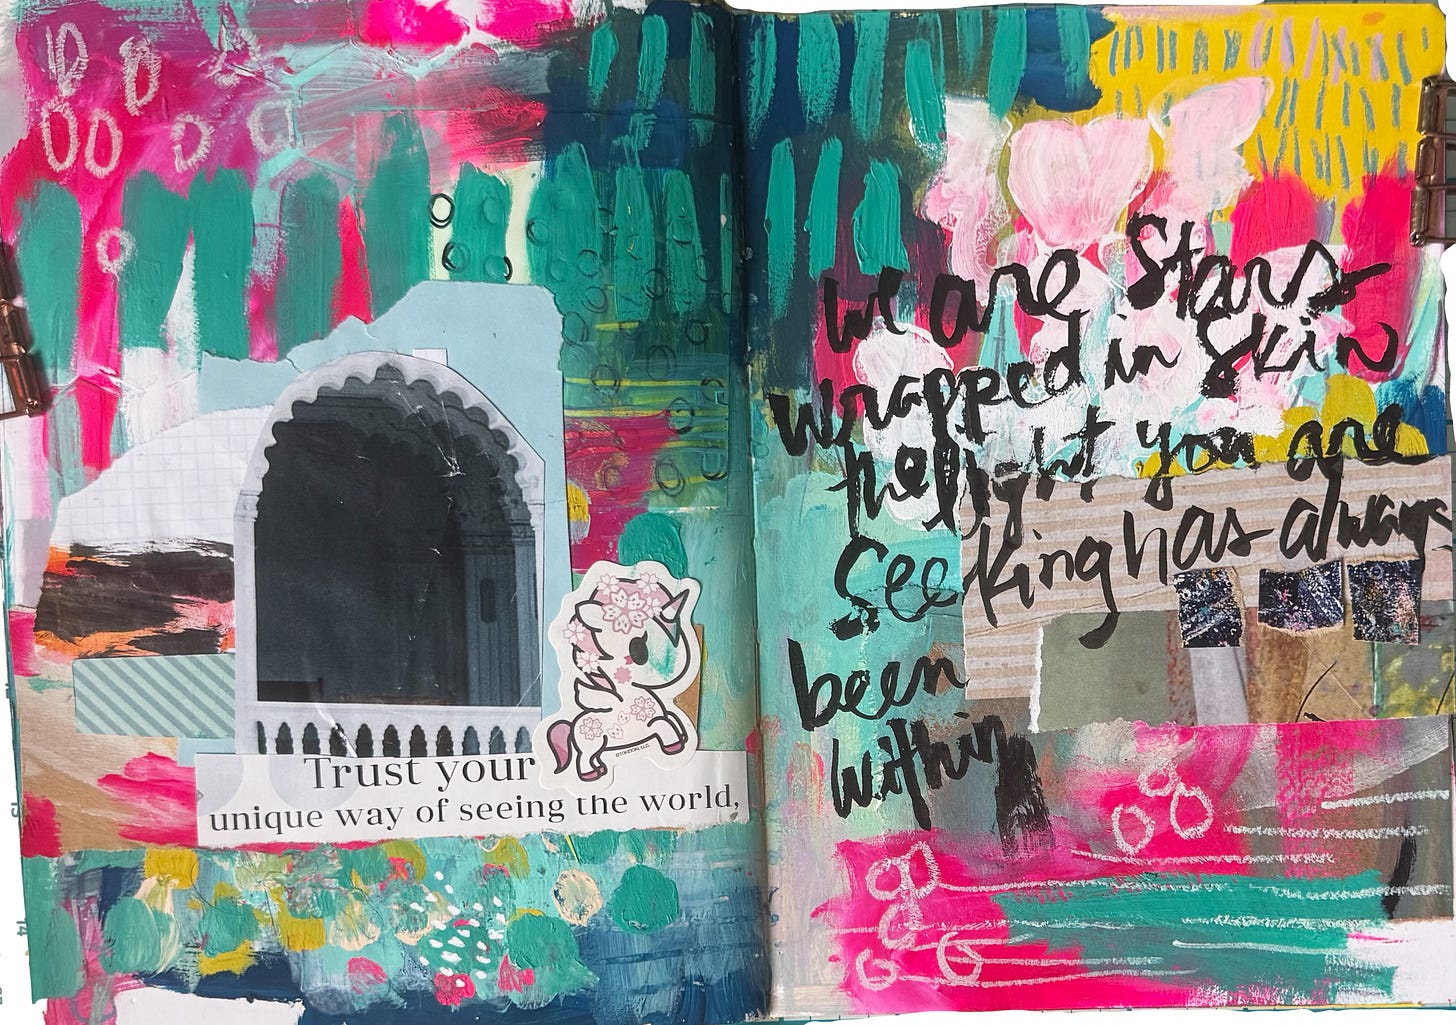 Trust your
unique way of seeing the world,
we are Stars
wrapped in Skin
the light you are
Seeking has always
been
within